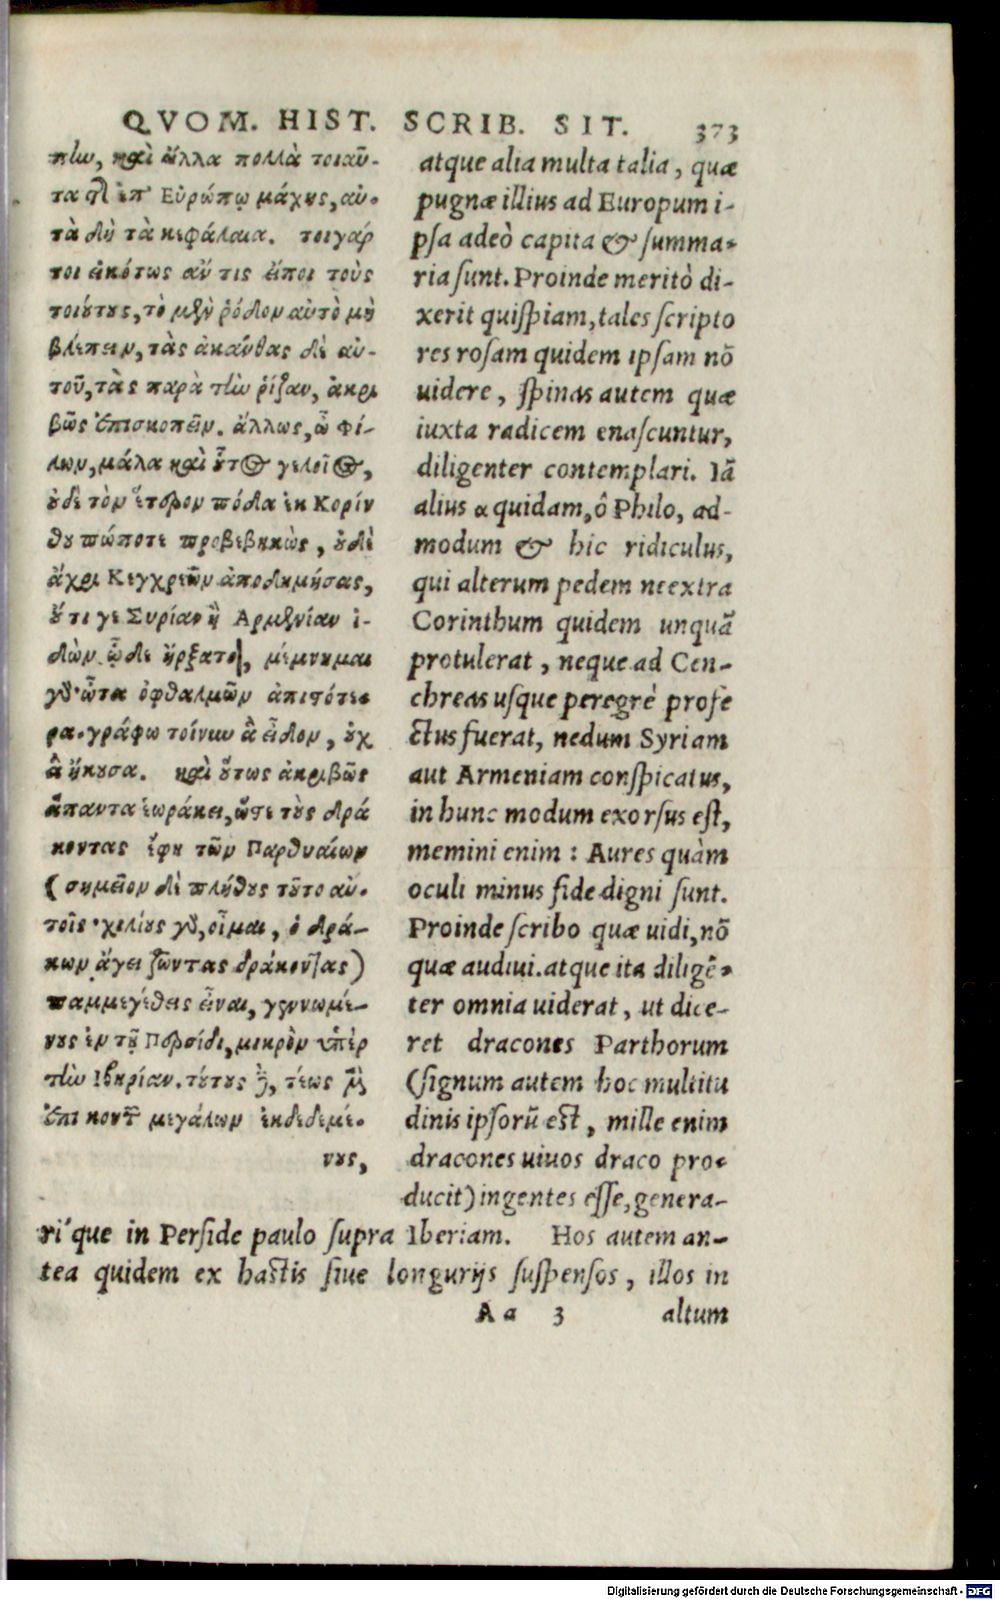 QVOM. HIST. SCRIB. SIT. 373
πίω, καὶ ἄλλα πολλὰ τοιαῦ-
τα τῆς ἐπ' Εὐρώπῳ μάχης, αὐ-
τὰ δὴ τὰ κεφάλαια. τοιγάρ
τοι εἰκότως ἄν τις εἴποι τοὺς
τοιούτους, τὸ μὲν ῥόδον αὐτὸ μὴ
βλέπειν, τὰς ἀκάνθας δὲ αὐ-
τοῦ, τὰς παρὰ τὴν ῥίζαν, ἀκρι
βῶς ἐπισκοπεῖν. ἄλλως, ὦ Φί-
λων, μάλα καὶ οὗτος γελοῖος,
οὐδὲ τὸν ἕτερον πόδα ἐκ Κορίν
θου πώποτε προβεβηκὼς, οὐδὲ
ἄχρι Κεγχρεῶν ἀποδημήσας,
οὔτι γε Συρίαν ἢ Ἀρμενίαν ἰ-
δὼν. ὧδε ἤρξατο, μέμνημαι
γὰρ ὦτα ὀφθαλμῶν ἀπιστότε-
ρα. γράφω τοίνυν ἃ εἶδον, οὐχ
ἃ ἤκουσα. καὶ οὕτως ἀκριβῶς
ἅπαντα ἑωράκει, ὥστε τοὺς δρά
κοντας ἔφη τῶν Παρθυαίων
(σημεῖον δὲ πλήθους τοῦτο αὐ-
τοῖς· χιλίους γὰρ, οἶμαι, ὁ δρά-
κων ἄγει ζῶντας δράκοντας)
παμμεγέθεις εἶναι, γεννωμέ-
νους ἐν τῇ Περσίδι, μικρὸν ὑπὲρ
τὴν Ἰβηρίαν. τούτους δὲ, τέως μὲν
ἐπὶ κοντῶν μεγάλων ἐκδεδεμέ-
νους,
atque alia multa talia, quæ
pugnæ illius ad Europum i-
psa adeò capita & summa-
ria sunt. Proinde meritò di-
xerit quispiam, tales scripto
res rosam quidem ipsam nō
uidere, spinas autem quæ
iuxta radicem enascuntur,
diligenter contemplari. Iā
alius quidam, ô Philo, ad-
modum & hic ridiculus,
qui alterum pedem ne extra
Corinthum quidem unquā
protulerat, neque ad Cen-
chreas usque peregrè profe
ctus fuerat, nedum Syriam
aut Armeniam conspicatus,
in hunc modum exorsus est,
memini enim: Aures quàm
oculi minus fide digni sunt.
Proinde scribo quæ uidi, nō
quæ audiui. atque ita diligē-
ter omnia uiderat, ut dice-
ret dracones Parthorum
(signum autem hoc multitu
dinis ipsorū est, mille enim
dracones uiuos draco pro-
ducit) ingentes esse, genera-
ri'que in Perside paulo supra Iberiam. Hos autem an-
tea quidem ex hastis siue longurijs suspensos, illos in
Aa 3 altum
Digitalisierung gefördert durch die Deutsche Forschungsgemeinschaft - DFG